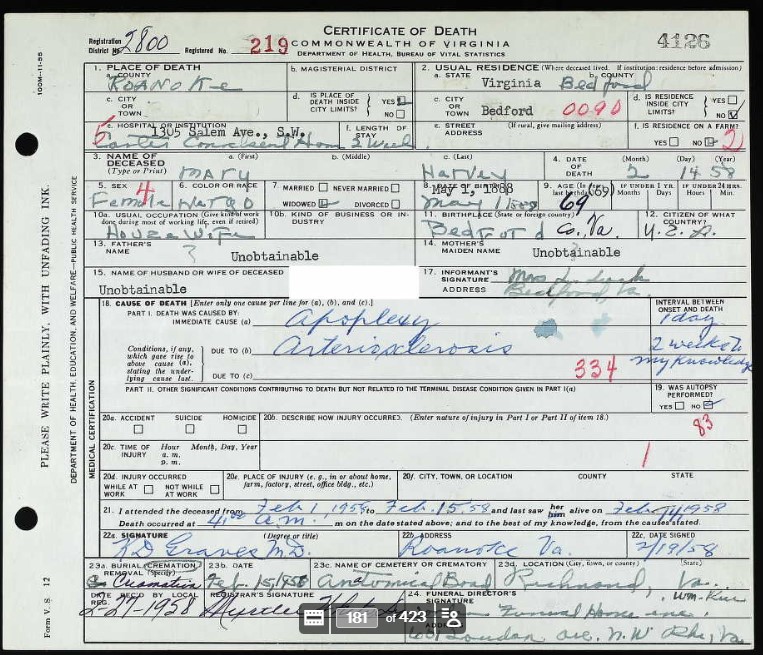 CERTIFICATE OF DEATH
COMMONWEALTH OF VIRGINIA
DEPARTMENT OF HEALTH, BUREAU OF VITAL STATISTICS
Registration District No. 2800 Registered No. 219
4126
100M-11-55
PLEASE WRITE PLAINLY, WITH UNFADING INK.
DEPARTMENT OF HEALTH, EDUCATION, AND WELFARE—PUBLIC HEALTH SERVICE
Form V. S. 12
1. PLACE OF DEATH
a. COUNTY
ROANOKE
b. MAGISTERIAL DISTRICT
2. USUAL RESIDENCE (Where deceased lived. If institution: residence before admission)
a. STATE Virginia
b. COUNTY Bedford
c. CITY OR TOWN
d. IS PLACE OF DEATH INSIDE CITY LIMITS? YES NO
c. CITY OR TOWN Bedford 0090
d. IS RESIDENCE INSIDE CITY LIMITS? YES NO
5
e. HOSPITAL OR INSTITUTION 1305 Salem Ave., S.W.
f. LENGTH OF STAY 2 Week
e. STREET ADDRESS (If rural, give mailing address)
f. IS RESIDENCE ON A FARM? YES NO
2
3. NAME OF DECEASED (Type or Print)
a. (First) MARY
b. (Middle)
c. (Last) Harvey
4. DATE OF DEATH (Month) (Day) (Year)
2 14 58
5. SEX Female
4
6. COLOR OR RACE Negro
7. MARRIED NEVER MARRIED
WIDOWED DIVORCED
May 1, 1888
9. AGE (69) 69
IF UNDER 1 YR. Months Days
IF UNDER 24 HRS. Hours Min.
10a. USUAL OCCUPATION (Give kind of work done during most of working life, even if retired)
House Wife
10b. KIND OF BUSINESS OR INDUSTRY
11. BIRTHPLACE (State or foreign country)
Bedford Co., Va.
12. CITIZEN OF WHAT COUNTRY?
U.S.A.
13. FATHER'S NAME
Unobtainable
14. MOTHER'S MAIDEN NAME
Unobtainable
15. NAME OF HUSBAND OR WIFE OF DECEASED
Unobtainable
17. INFORMANT'S SIGNATURE
ADDRESS Bedford, Va.
MEDICAL CERTIFICATION
18. CAUSE OF DEATH [Enter only one cause per line for (a), (b), and (c).]
PART I. DEATH WAS CAUSED BY:
IMMEDIATE CAUSE (a) Apoplexy
INTERVAL BETWEEN ONSET AND DEATH
1 day
Conditions, if any, which gave rise to above cause (a), stating the underlying cause last.
DUE TO (b) Arteriosclerosis
2 weeks to my knowledge
DUE TO (c)
334
PART II. OTHER SIGNIFICANT CONDITIONS CONTRIBUTING TO DEATH BUT NOT RELATED TO THE TERMINAL DISEASE CONDITION GIVEN IN PART I(a)
19. WAS AUTOPSY PERFORMED? YES NO
83
20a. ACCIDENT SUICIDE HOMICIDE
20b. DESCRIBE HOW INJURY OCCURRED. (Enter nature of injury in Part I or Part II of item 18.)
20c. TIME OF INJURY Hour a. m. p. m. Month, Day, Year
1
20d. INJURY OCCURRED WHILE AT WORK NOT WHILE AT WORK
20e. PLACE OF INJURY (e. g., in or about home, farm, factory, street, office bldg., etc.)
20f. CITY, TOWN, OR LOCATION COUNTY STATE
21. I attended the deceased from Feb 1, 1958 to Feb. 15, 58 and last saw her him alive on Feb 14 1958
Death occurred at 4:00 a.m. m on the date stated above; and to the best of my knowledge, from the causes stated.
22a. SIGNATURE (Degree or title)
K D Graves M.D.
22b. ADDRESS
Roanoke Va.
22c. DATE SIGNED
2/19/58
23a. BURIAL, CREMATION, REMOVAL (Specify)
Cremation
23b. DATE
Feb. 15/1958
23c. NAME OF CEMETERY OR CREMATORY
Anatomical Board
23d. LOCATION (City, town, or county) (State)
Richmond, Va.
DATE REC'D BY REG.
2-27-1958
REGISTRAR'S SIGNATURE
24. FUNERAL DIRECTOR'S SIGNATURE
Funeral Home inc.
Loudon Ave. N.W. Rke, Va
181 of 423